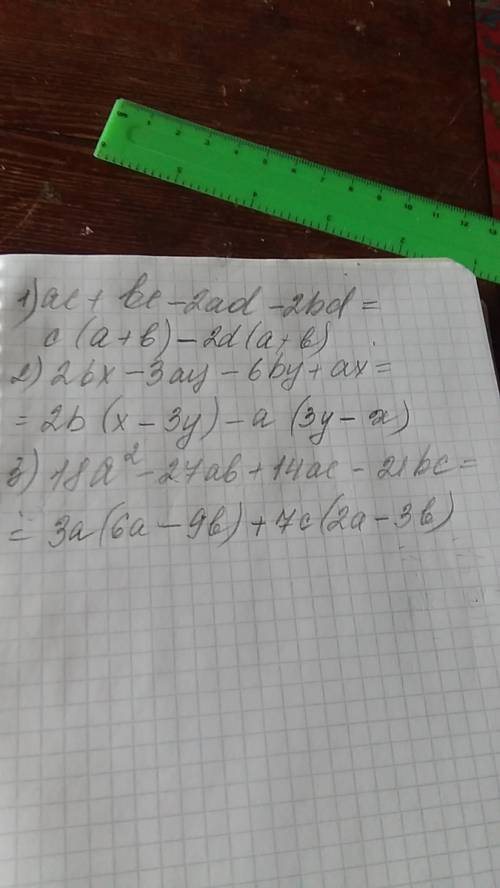 1) ac + bc - 2ad - 2bd =
c (a + b) - 2d (a + b)
2) 2bx - 3ay - 6by + ax =
= 2b (x - 3y) - a (3y - x)
3) 18a² - 27ab + 14ac - 21bc =
= 3a (6a - 9b) + 7c (2a - 3b)